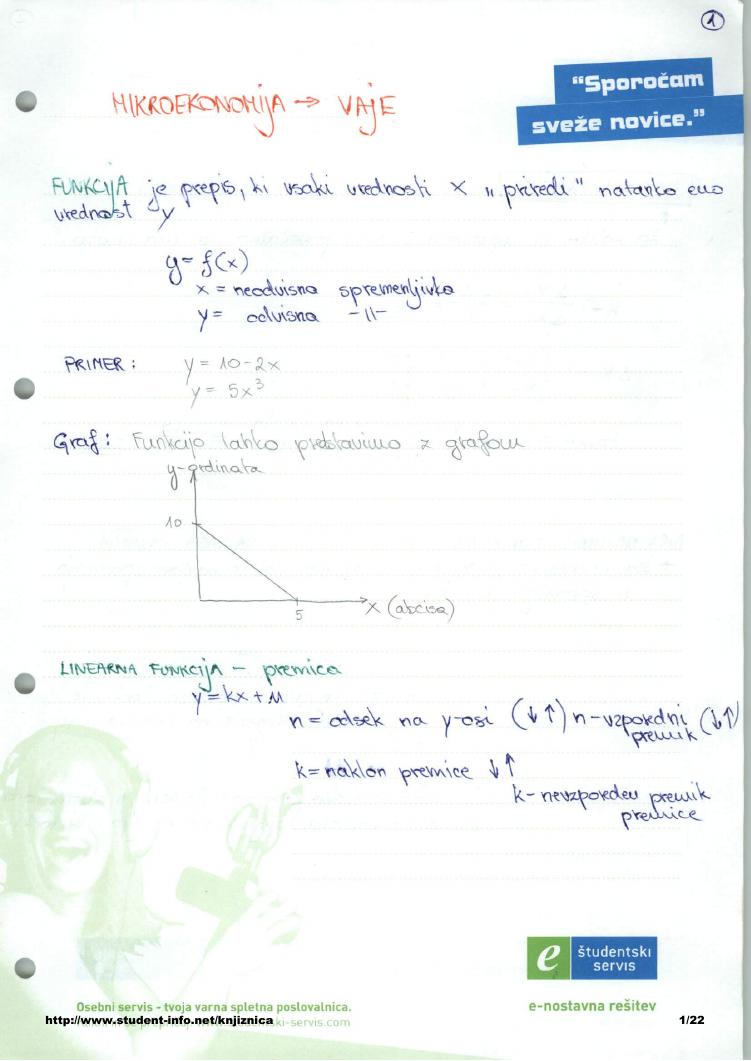 1
"Sporočam
sveže novice."
MIKROEKONOMIJA → VAJE
FUNKCIJA je prepis, ki vsaki vrednosti x „priredi" natanko eno
vrednost y
y = f(x)
x = neodvisna spremenljivka
y = odvisna -||-
PRIMER: y = 10-2x
y = 5x³
Graf: Funkcijo lahko predstavimo z grafom
y-ordinata
10
5
x (abcisa)
LINEARNA FUNKCIJA - premica
y = kx + n
n = odsek na y-osi (↓↑) n-vzporedni (↓↑)
premik
k = naklon premice ↓↑
k-nevzporeden premik
premice
e študentski
servis
Osebni servis - tvoja varna spletna poslovalnica.
e-nostavna rešitev
http://www.student-info.net/knjiznica
1/22